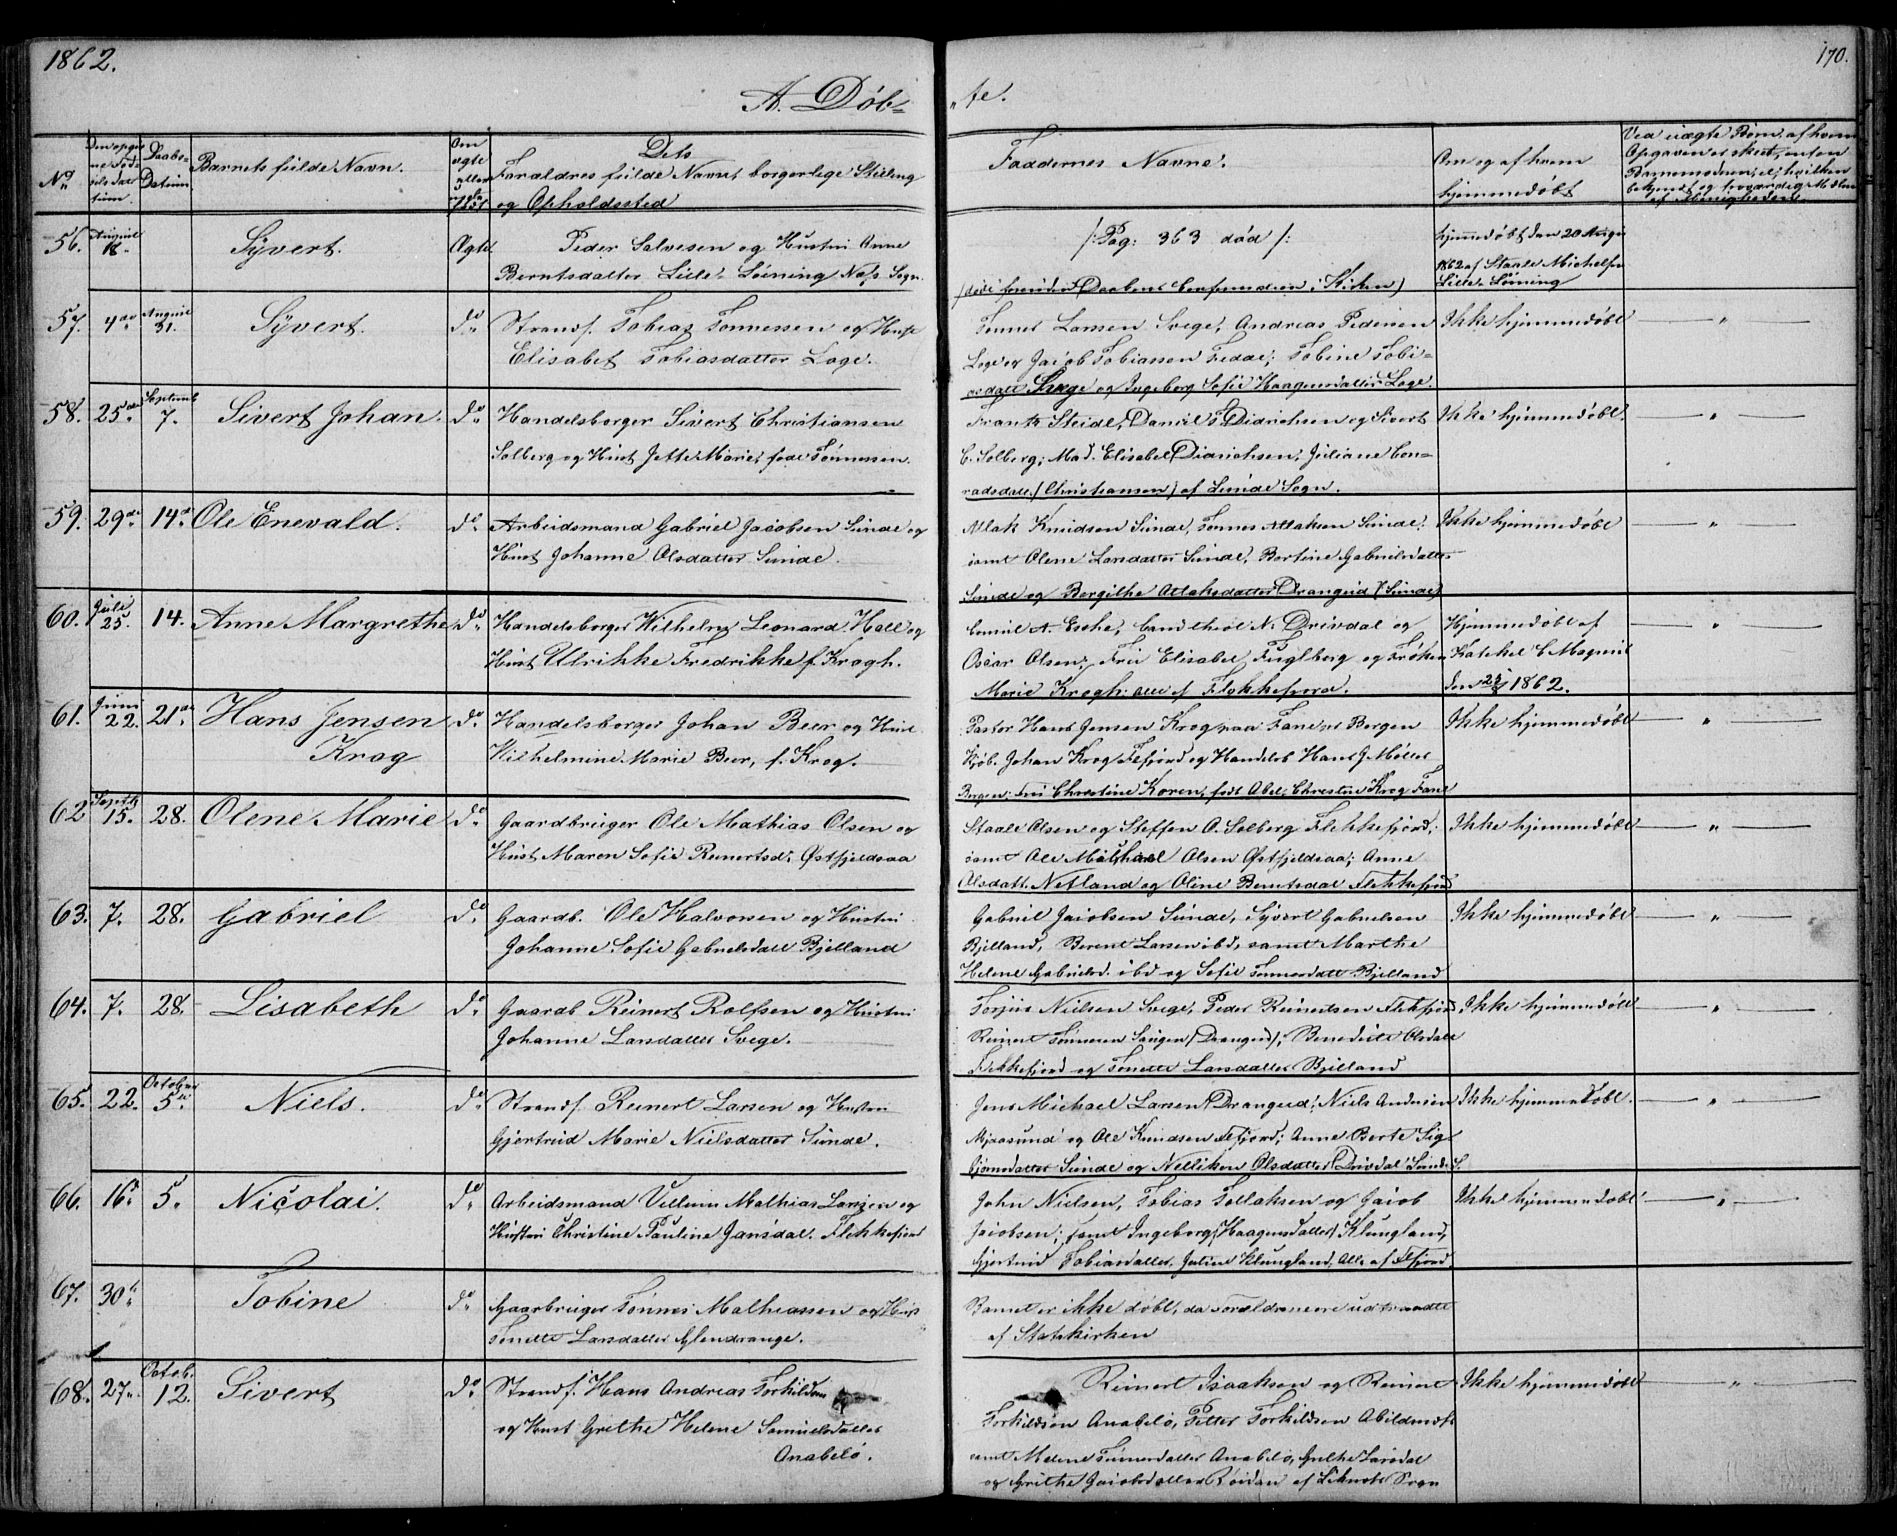 1862.
170.
A. Døb-
"te.
No
Den opgivne Fødselsdatum
Daabs-Datum
Barnets fulde Navn.
Om ægte eller uægte
Dets
Forældres fulde Navne, borgerlige Stilling
og Opholdssted
Faddernes Navne.
Om og af hvem
hjemmedøbt
Ved uægte Børn, af hvem
Opgaven er skeet, enten
56. August 18. Sÿvert. Ægte
Peder Salvesen og Hustru Anne
Berntsdatter Lille-Løining Næs Sogn.
/: Pag: 363 død /:
hjemmedøbt den 20 August
1862 af Staale Michelsen
Lille-Løining
57. 4de August 31. Sÿvert. do
Strands. Tobias Tønnessen og Hust
Elisabet Tobiasdatter Loge.
Tønnes Larsen Svege, Andreas Pedersen
Loge og Jacob Tobiassen Fedde; Tobine Tobi-
asdatt Svege og Ingeborg Sofie Haagensdatter Loge.
Ikke hjemmedøbt
58. 25de Septemb 7. Sivert Johan. do
Handelsborger Sivert Christiansen
Solberg og Hust Jette Marie, fød Tønnessen.
Frantz Steidl, Daniel Didrichsen og Sivert
C. Solberg; Mad. Elisabet Didrichsen, Juliane Con-
radsdatt. (Christiansen) af Lunde Sogn.
Ikke hjemmedøbt.
59. 29de 14d Ole Enevald. do
Arbeidsmand Gabriel Jacobsen Sunde og
Hust Johanne Olsdatter Sunde.
Atlak Knudsen Sunde, Tønnes Atlaksen Sunde;
samt Olene Larsdatter Sunde, Bertine Gabrielsdatter
Sunde og Bergithe Atlaksdatter Drangeid (Sunde)
Ikke hjemmedøbt
60. Juli 25. 14. Anne Margrethe do
Handelsborger Wilhelm Leonard Hall og
Hust Ulrikke Fredrikke f. Krogh.
Emil A. Esche, Cand theol N. Drivdal og
Oscar Olsen; Fru Elisabet Fuglberg og Frøken
Marie Krogh; alle af Flekkefjord.
Hjemmedøbt af
Katekel C Magnus
1862.
61. Juni 22. 21de Hans Jensen do
Krog
Handelsborger Johan Beer og Hust
Wilhelmine Marie Beer, f. Krog.
Pastor Hans Jensen Krog paa Fane ved Bergen
Kjøb. Johan Krog Flefjord og Handelsb Hans J Møller
Bergen; Fru Christine Koren, født Abel; Christine Krog Fane
Ikke hjemmedøbt
62 Septb 15. 28. Olene Marie do
Gaardbruger Ole Mathias Olsen og
Hust Maren Sofie Reinertsd: Østfjeldsaa
Staale Olsen og Steffen O. Solberg Flekkefjord;
samt Ole Michael Olsen Østfjeldsaa; Anne
Olsdatt. Netland og Oline Berntsdat Flekkefjord
Ikke hjemmedøbt
63. 7. 28. Gabriel do
Gaardb. Ole Halvorsen og Hustru
Johanne Sofie Gabrielsdatt Bjelland
Gabriel Jacobsen Sunde, Sÿvert Gabrielsen
Bjelland, Berent Larsen ibd, samt Marthe
Helene Gabrielsd. ibd og Sofie Tønnesdatt Bjelland
Ikke hjemmedøbt
64. 7. 28. Lisabeth do
Gaardb Reinert Rolfsen og Hustru
Johanne Larsdatter Svege.
Torjus Nielsen Svege, Peder Reinertsen Flekfjord
Reinert Tønnesen Saugen (Drangeid), Benedicte Olsdatt
Flekkefjord og Tonette Larsdatter Bjelland
Ikke hjemmedøbt
65. 22. October 5te Niels. do
Strands. Reinert Larsen og Hustru
Gjertrud Marie Nielsdatter Sunde.
Jens Michael Larsen Drangeid; Niels Andersen
Mjaasund og Ole Knudsen Flefjord; Anne Berte Sig-
bjørnsdatter Sunde og Nelliken Olsdatter Drivdal Sunde S.
Ikke hjemmedøbt.
66. 16d 5. Nicolai. do
Arbeidsmand Villum Mathias Larsen og
Hustru Christine Pauline Jansdat. Flekkefjord
John Nielsen, Tobias Tollaksen og Jacob
Jacobsen; samt Ingeborg (Haagensdatter) Klungland,
Gjertrud Tobiasdatter, Juline Klungland, Alle af Flefjord
Ikke hjemmedøbt
67. 30te Tobine do
Gaarbruger Tønnes Mathiassen og Hust
Tonette Larsdatter Glendrange.
Barnet er ikke døbt, da Forældrene ere udtraadte
af Statskirken
68. 27. Octob. 12. Sivert do
Strands. Hans Andreas Torkildsen
og Hust Grethe Helene Samuelsdatter
Anabelø.
Reinert Isaaksen og Reinert
Torkildsen Anabelø, Petter Torkildsen Abildsnæs
samt Malene Tønnesdatter Anabelø, Grethe Larsdat
og Grethe Jacobsdatter Røidan af Liknæs Sogn
Ikke hjemmedøbt